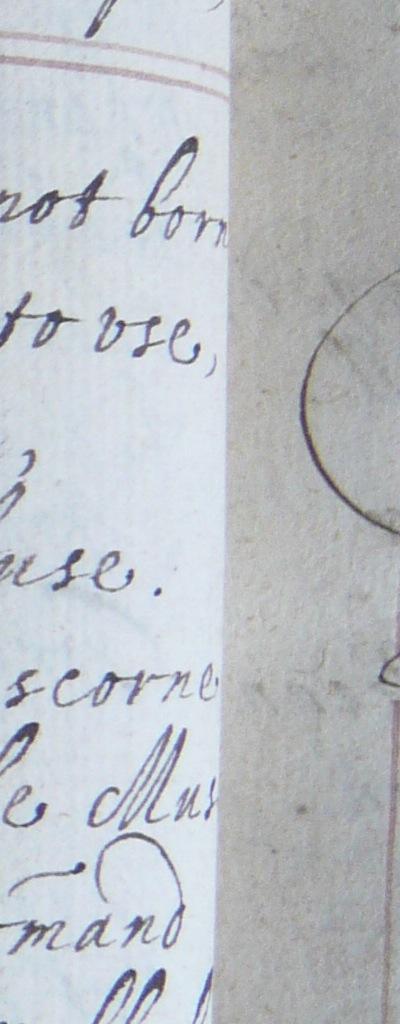 not born
to vse,
use.
scorne
Mus
mand